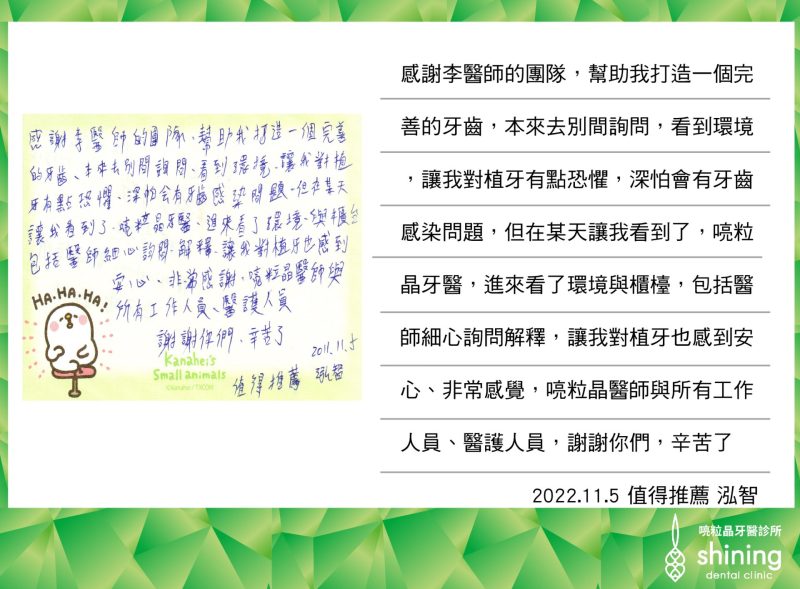 感謝李醫師的團隊、幫助我打造一個完善
的牙齒、本來去別間詢問、看到環境、讓我對植
牙有點恐懼、深怕會有牙齒感染問題、但在某天
讓我看到了、喨粒晶牙醫、進來看了環境、與櫃台
包括醫師細心詢問、解釋、讓我對植牙也感到
安心、非常感謝、喨粒晶醫師與
所有工作人員、醫護人員
謝謝你們、辛苦了
2011.11.5
值得推薦 泓智
HA.HA.HA!
Kanahei's
Small animals
©kanahei / TXCOM
感謝李醫師的團隊，幫助我打造一個完
善的牙齒，本來去別間詢問，看到環境
，讓我對植牙有點恐懼，深怕會有牙齒
感染問題，但在某天讓我看到了，喨粒
晶牙醫，進來看了環境與櫃檯，包括醫
師細心詢問解釋，讓我對植牙也感到安
心、非常感覺，喨粒晶醫師與所有工作
人員、醫護人員，謝謝你們，辛苦了
2022.11.5 值得推薦 泓智
喨粒晶牙醫診所
shining
dental clinic